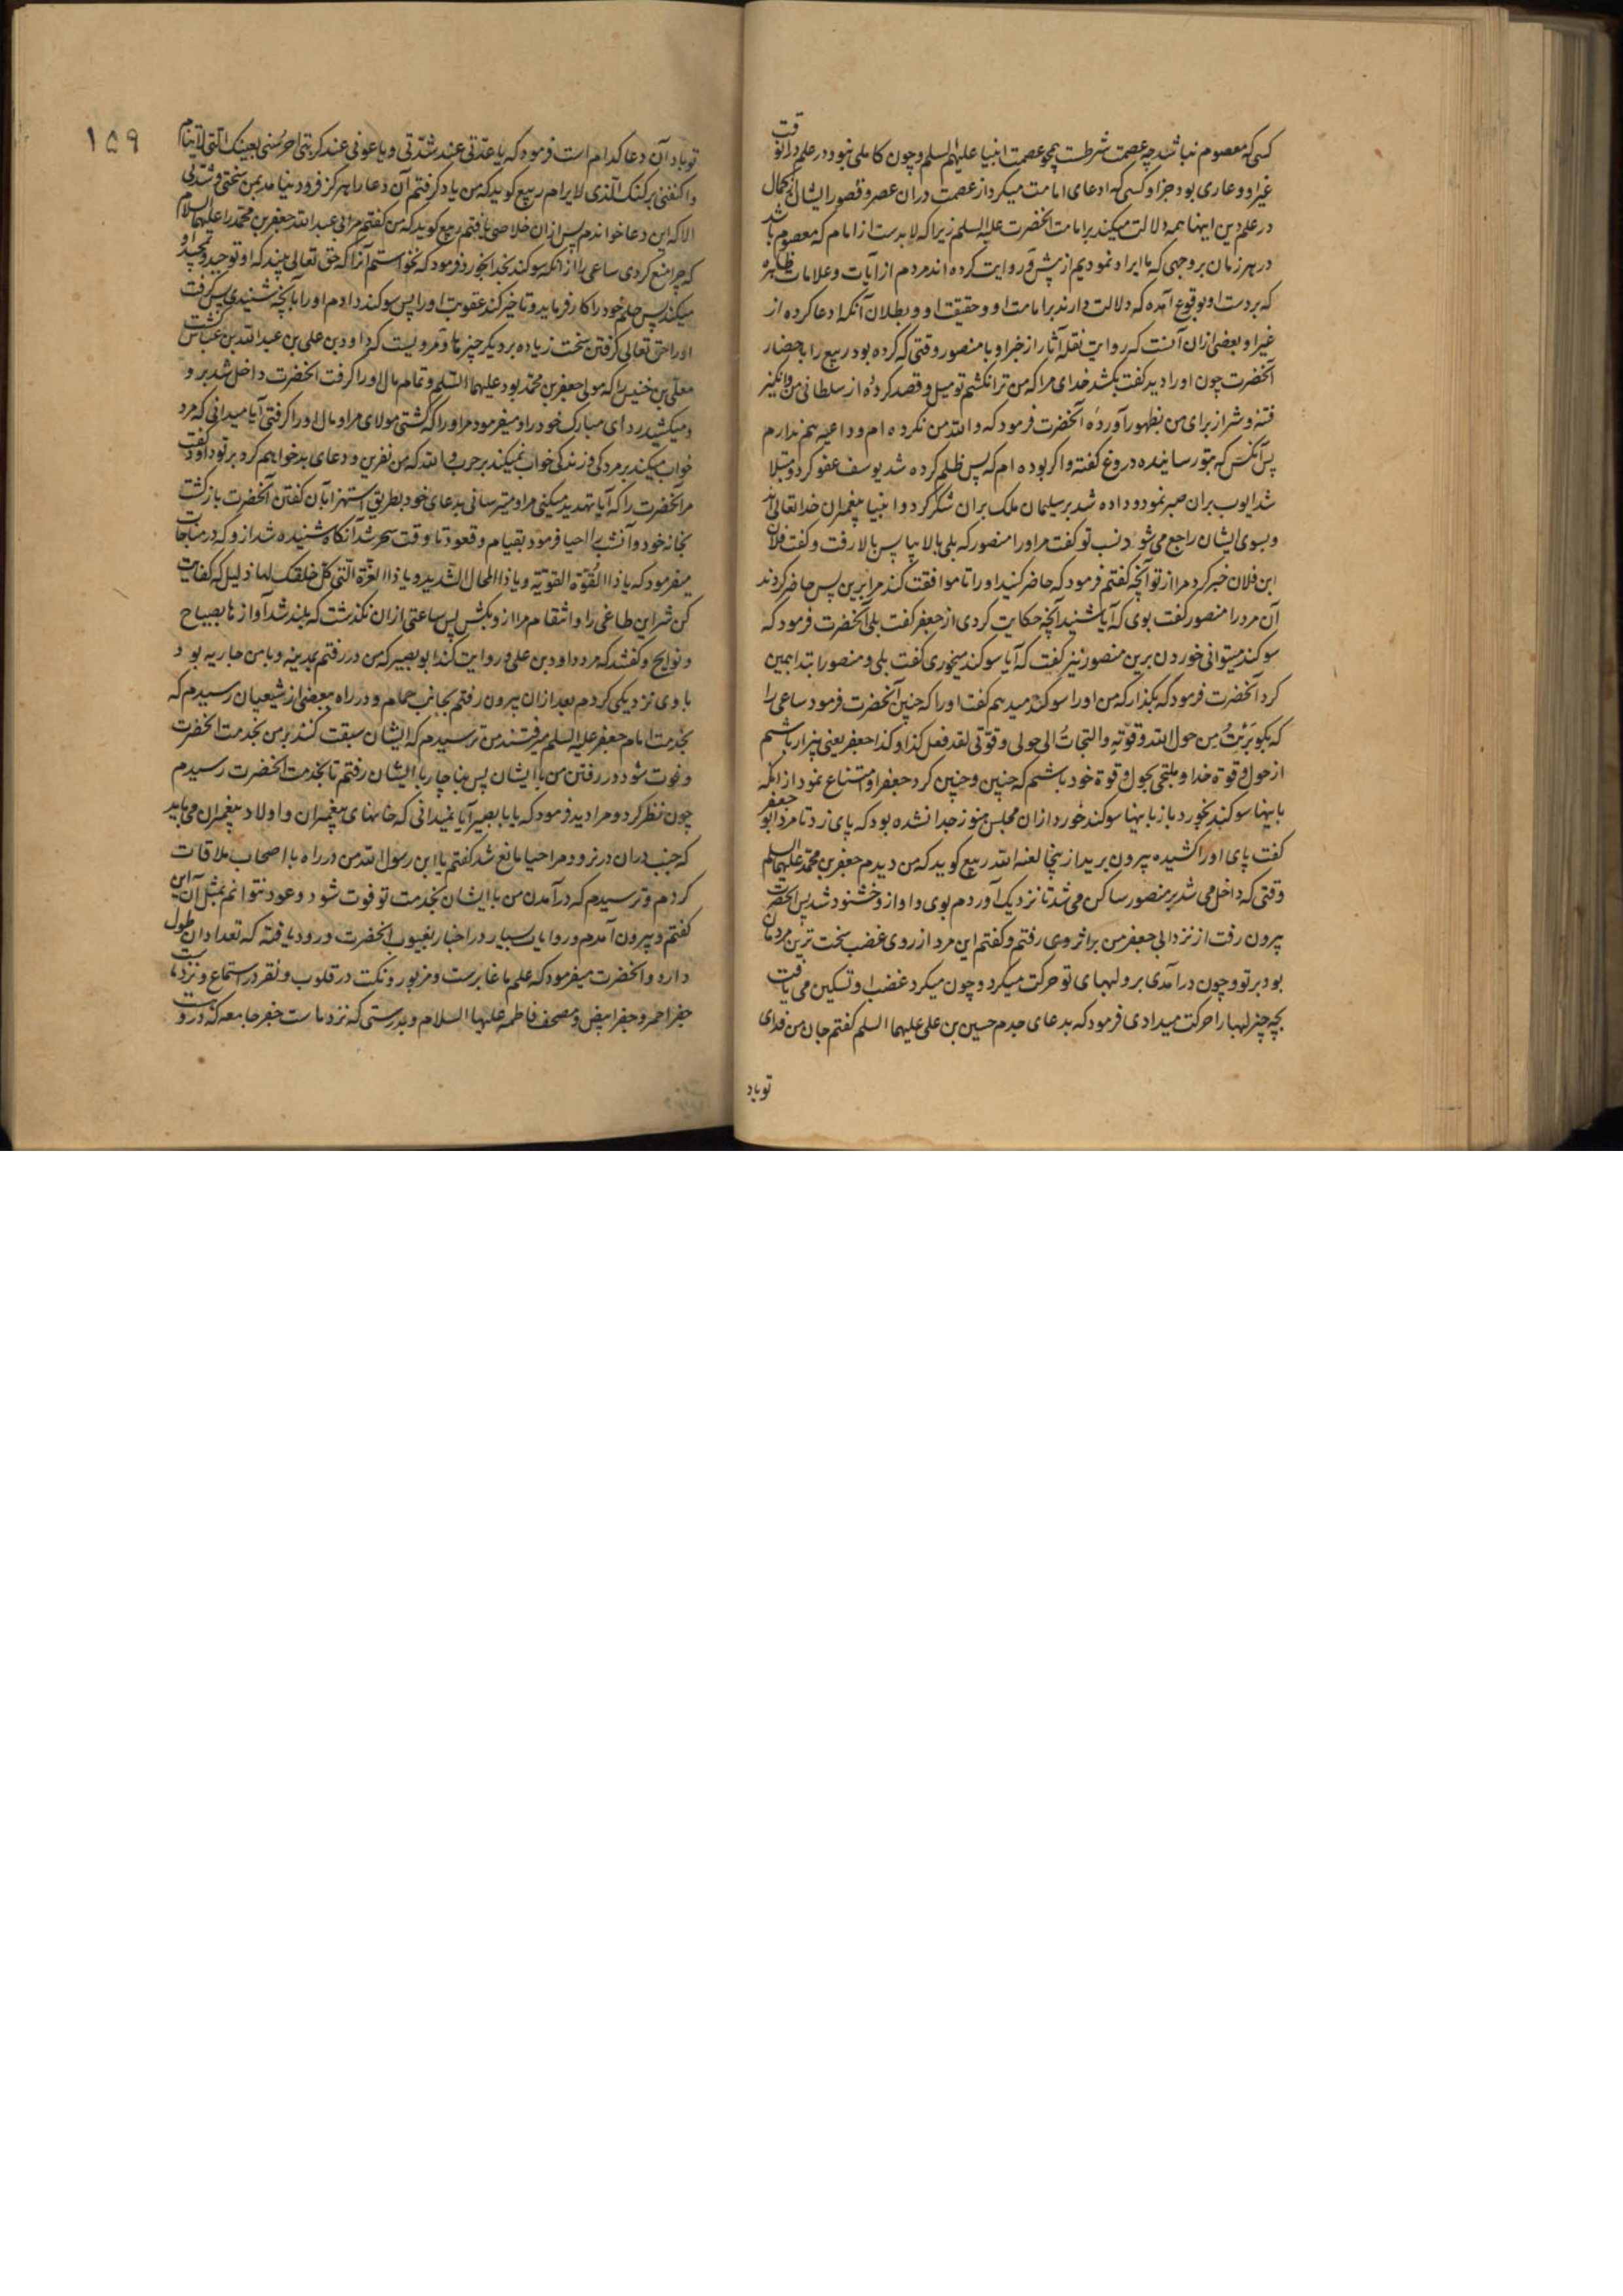 کسی که معصوم نباشد چه عصمت شرطست همچو عصمت انبیا علیهم السلم و چون کاملی نبود در علم در آنوقت
غیر او و عاری بود جز او کسی که ادعای امامت میکرد از عصمت در ان عصر و قصور ایشان از کمال
در علم دین اینها همه دلالت میکند بر امامت آنحضرت علیه السلم زیرا که لابدست از امام که معصوم باشد
در هر زمان بر وجهی که ما ایراد نمودیم از پیش و روایت کرده اند مردم از آیات و علامات ظاهره
که بر دست او بوقوع آمده که دلالت دارند بر امامت او و حقیقت او و بطلان آنکه ادعا کرده از
غیر او و بعضی از ان آنست که روایت نقله آثار از خبر او با منصور وقتی که کرده بود ربیع را باحضار
آنحضرت چون او را دید گفت بکشد خدای مرا که من ترا نکشم تو میل و قصد کردهٔ از سلطانی من و انگیز
فتنه و شر از برای من بظهور آوردهٔ آنحضرت فرمود که والله من نکرده ام و داعیه هم ندارم
پس آنکس که بتو رسانیده دروغ گفته و اگر بوده ام که پس ظلم کرده شد یوسف عفو کرد و مبتلا
شد ایوب بران صبر نمود و داده شد بر سلیمان ملک بران شکر کرد و انبیا پیغمبران خدا تعالی اند
و بسوی ایشان راجع می شود نسب تو گفت مر او را منصور که بلی بالا بیا پس بالا رفت و گفت فلان
ابن فلان خبر کرد مرا از تو آنچه گفتم فرمود که حاضر کنید او را تا موافقت کند مرا برین پس حاضر کردند
آن مرد را منصور گفت بوی که آیا شنید آنچه حکایت کردی از جعفر گفت بلی آنحضرت فرمود که
سوکند میتوانی خوردن برین منصور نیز گفت که آیا سوکند میخوری گفت بلی و منصور ابتدا بمین
کرد آنحضرت فرمود که بگذار که من او را سوکند میدهم گفت او را که چنین آنحضرت فرمود ساعی را
که بگو بَرِئْتُ مِن حول الله و قوّته و التجاتُ الی حولی و قوّتی لقد فعل کذا و کذا جعفر یعنی بیزار باشم
از حول و قوة خدا و ملتجی بحول و قوة خود باشم که چنین و چنین کرد جعفر او امتناع نمود از انکه
باینها سوکند بخورد باز باینها سوکند خورد از ان مجلس هنوز جدا نشده بود که پای زد تا مرد ابو جعفر
گفت پای او را کشیده بیرون برید از ینجا لعنه الله ربیع گوید که من دیدم جعفر بن محمد علیهما السلم
وقتی که داخل می شد بر منصور ساکن می شد تا نزدیک آوردم بوی و او ازو خشنود شد پس آنحضرت
بیرون رفت از نزد ابی جعفر من بر اثر وی رفتم و گفتم این مرد از روی غضب سخت ترین مردمان
بود بر تو و چون در آمدی برو لبهای تو حرکت میکرد و چون میکرد غضب او تسکین می یافت
بچه چیز لبها را حرکت میدادی فرمود که بدعای جدم حسین بن علی علیهما السلم گفتم جان من فدای
تو باد
۱۵۹
تو باد آن دعا کدام است فرمود که یا عدّتی عند شدّتی و یا غوثی عند کربتی احرسنی بعینک التی لا تنام
و اکنفنی برکنک الذی لا یرام ربیع گوید که من یاد گرفتم آن دعا را هرگز فرود نیامد بمن سختی و شدتی
الا که این دعا خواندم پس از ان خلاصی یافتم ربیع گوید که من گفتم مر ابی عبد الله جعفر بن محمد را علیهما السلام
که چرا منع کردی ساعی را از انکه سوکند بخدا بخورد فرمود که نخواستم آنرا که حق تعالی بیند که او توحید و تمجید او
میکند پس حلم خود را کار فرماید و تاخیر کند عقوبت او را پس سوکند دادم او را بآنچه شنیدی پس گرفت
او را حق تعالی گرفتن سخت زیاده بر دیگر چیزها و مرویست که داود بن علی بن عبد الله بن عباس کشت
معلی بن خنیس را که مولی جعفر بن محمد بود علیهما السّلم و تمام مال او را گرفت آنحضرت داخل شد برو
و میکشید ردای مبارک خود را و میفرمود مر او را که کشتی مولای مرا و مال او را گرفتی آیا میدانی که مرد
خواب میکند بر مردگی فرزندگی خواب نمیکند بر حرب والله که من نفرین و دعای بد خواهم کرد بر تو داود گفت
مر آنحضرت را که آیا تهدید میکنی مرا و میترسانی بدعای خود بطریق استهزا بآن گفتن آنحضرت بازگشت
بخانه خود و آنشب را احیا فرمود بقیام و قعود تا وقت سحر شد آنگاه شنیده شد ازو که در مناجات
میفرمود که یا ذا القُوّة القویّه و یا ذا المحال الشّدید و یا ذا العزّة الّتی کلّ خلقک لها ذلیل که کفایت
کن شر این طاغی را و انتقام مرا ازو بکش پس ساعتی از ان نگذشت که بلند شد آوازها بصیاح
و نوایح و گفتند که مرد داود بن علی و روایت کند ابو بصیر که من در رفتم بمدینه و با من جاریه بود
با وی نزدیکی کردم بعد از ان بیرون رفتم بجانب حمام و در راه ببعضی از شیعیان رسیدم که
بخدمت امام جعفر علیه السلم میرفتند من ترسیدم که ایشان سبقت کنند بر من بخدمت آنحضرت
و فوت شود در رفتن من با ایشان پس بناچار با ایشان رفتم تا بخدمت آنحضرت رسیدم
چون نظر کرد و مرا دید فرمود که یا با بصیر آیا نمیدانی که خانهای پیغمبران و اولاد پیغمبران می باید
که جنب در ان در نرود مرا حیا مانع شد گفتم یا ابن رسول الله من در راه با اصحاب ملاقات
کردم و ترسیدم که در آمدن من با ایشان بخدمت تو فوت شود و عود نتوانم بمثل آن این
گفتم و بیرون آمدم و روایات بسیار در اخبار بغیوب آنحضرت ورود یافته که تعداد ان طول
دارد و آنحضرت میفرمود که علم ما غابرست و مزبور و نکت در قلوب و نقر در استماع و نزد ماست
جفر احمر و جفر ابیض و مصحف فاطمه علیها السلام و بدرستی که نزد ماست جفر جامعه که در وست